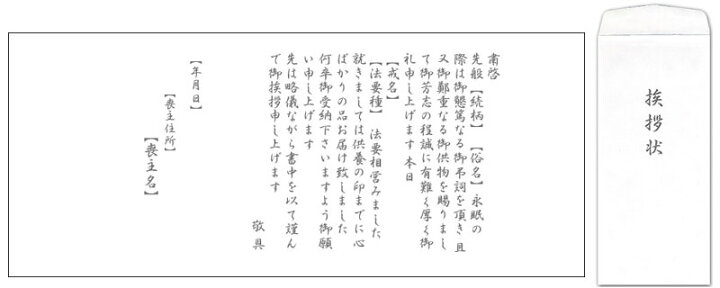 粛啓
先般【続柄】【俗名】永眠の
際は御懇篤なる御弔詞を頂き且
又御鄭重なる御供物を賜りまし
て御芳志の程誠に有難く厚く御
礼申し上げます 本日
【戒名】
【法要種】 法要相営みました
就きましては供養の印までに心
ばかりの品お届け致しました
何卒御受納下さいますよう御願
い申し上げます
先は略儀ながら書中を以て謹ん
で御挨拶申し上げます
敬具
【年月日】
【喪主住所】
【喪主名】
挨拶状